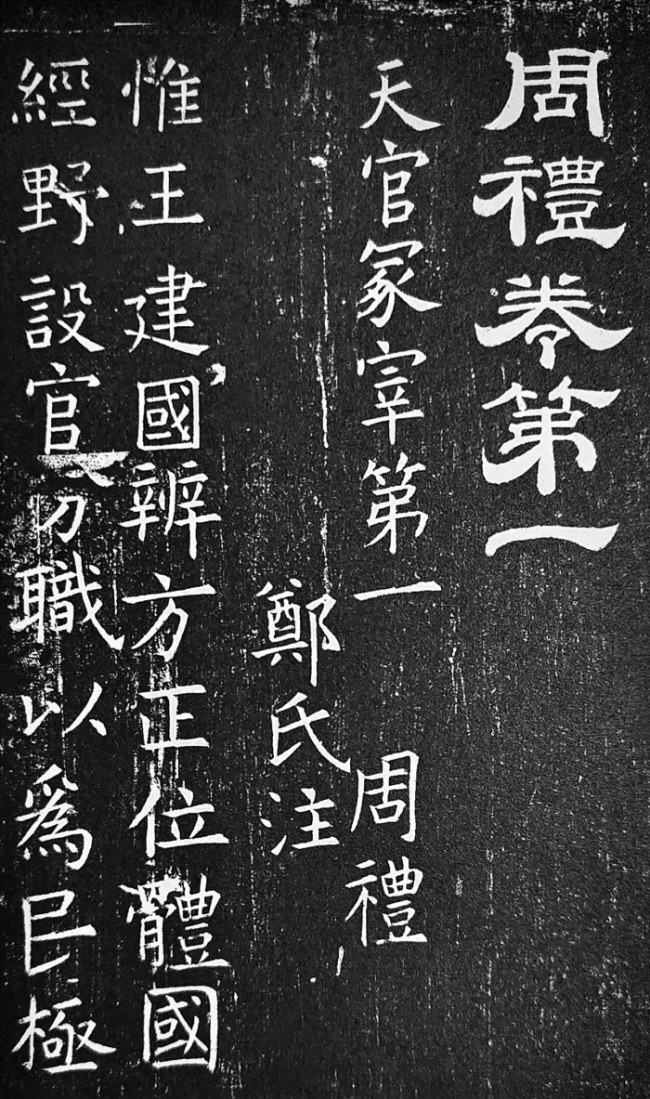 周禮卷第一
天官冢宰第一 周禮
鄭氏注
惟王建國辨方正位體國
經野設官分職以爲民極